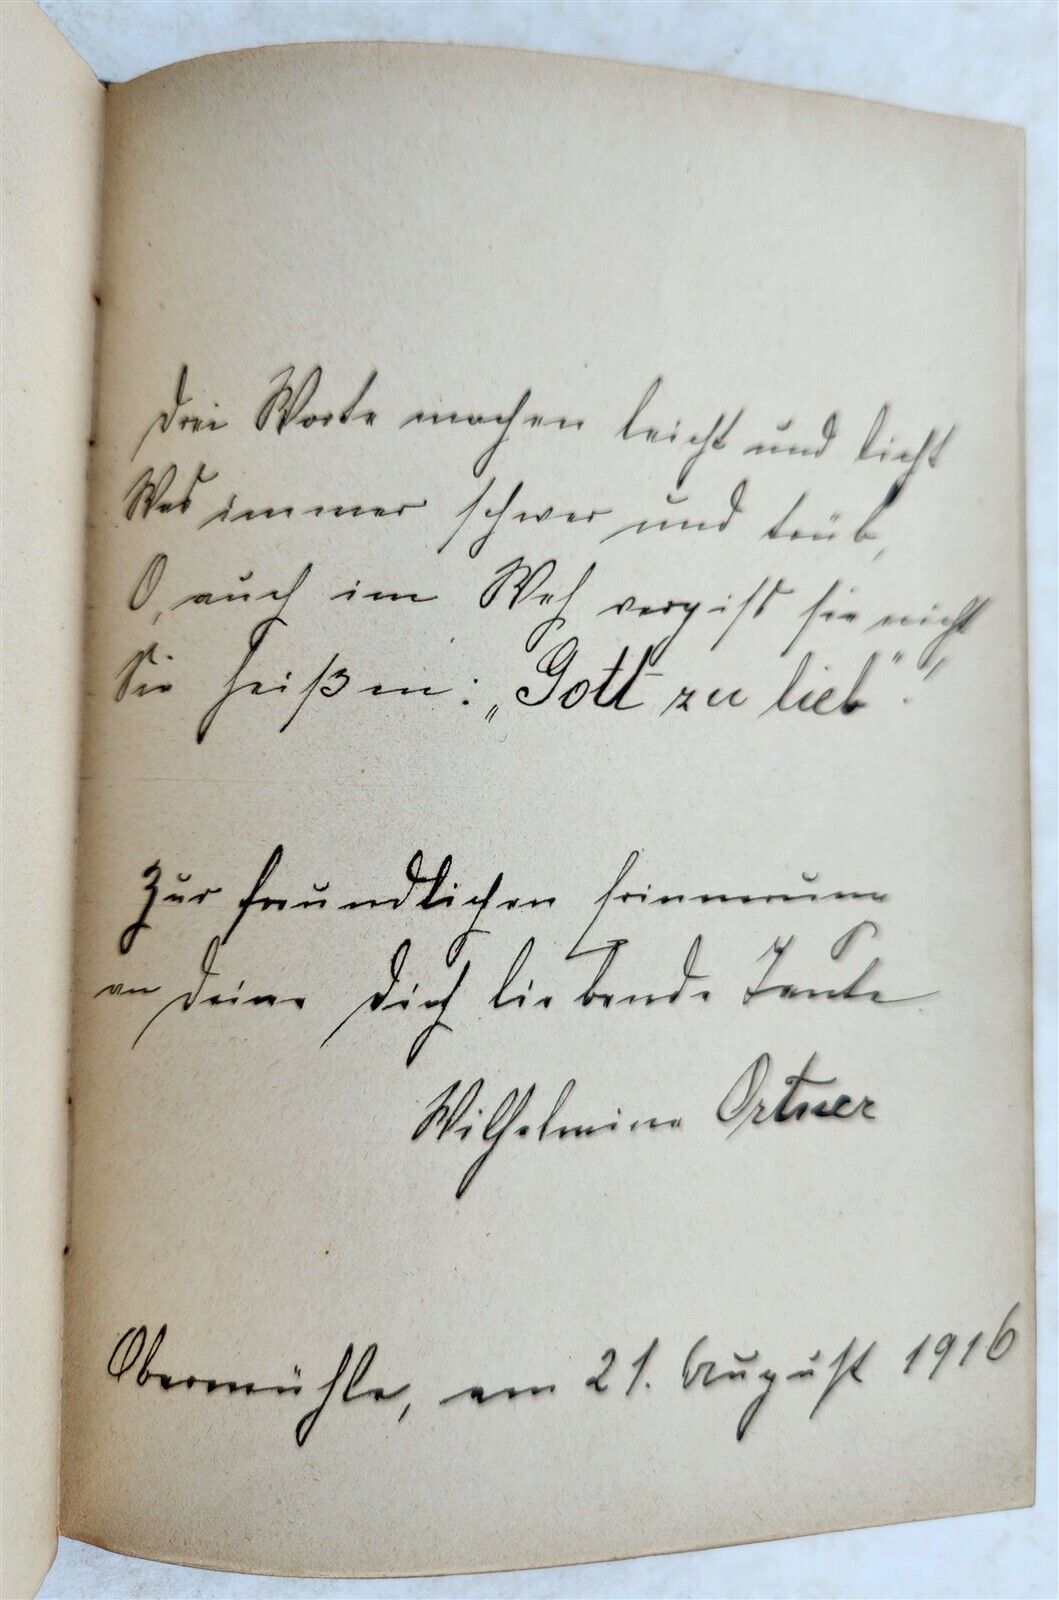 Drei Worte machen leicht und licht
Was immer schwer und trüb,
O, auch im Weh vergiß sie nicht
Sie heißen: „Gott zu lieb“!
Zur freundlichen Erinnerung
an Deine Dich liebende Tante
Wilhelmine Ortner
Obermühle, am 21. August 1916